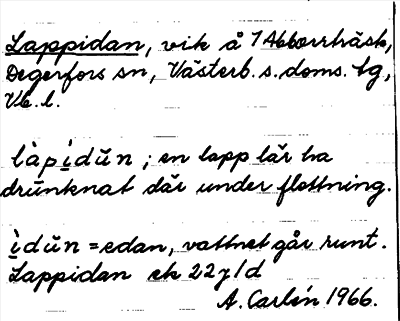 Lappidan, vik å 7 Abborrträsk,
Degerfors sn, Västerb. s. doms. tg,
Vb. l.
làpidŭn ; en lapp lär ha
drunknat där under flottning.
ìdŭn = edan, vattnet går runt.
Lappidan ek 22 y/d
A. Carlén 1966.